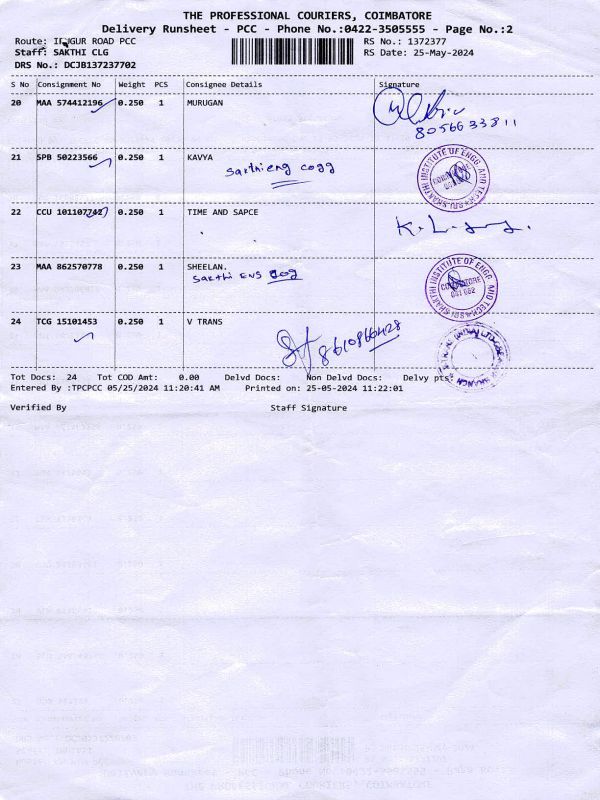 THE PROFESSIONAL COURIERS, COIMBATORE
Delivery Runsheet - PCC - Phone No.:0422-3505555 - Page No.:2
Route: IRUGUR ROAD PCC RS No.: 1372377
Staff: SAKTHI CLG RS Date: 25-May-2024
DRS No.: DCJB137237702
S No Consignment No Weight PCS Consignee Details Signature
20 MAA 574412196 0.250 1 MURUGAN
8056633811
21 SPB 50223566 0.250 1 KAVYA
sakthieng cogg
22 CCU 101107742 0.250 1 TIME AND SAPCE
23 MAA 862570778 0.250 1 SHEELAN.
Sakthi ENS cog
COIMBATORE
641 062
24 TCG 15101453 0.250 1 V TRANS
8610866428
Tot Docs: 24 Tot COD Amt: 0.00 Delvd Docs: Non Delvd Docs: Delvy pts:
Entered By :TPCPCC 05/25/2024 11:20:41 AM Printed on: 25-05-2024 11:22:01
Verified By Staff Signature